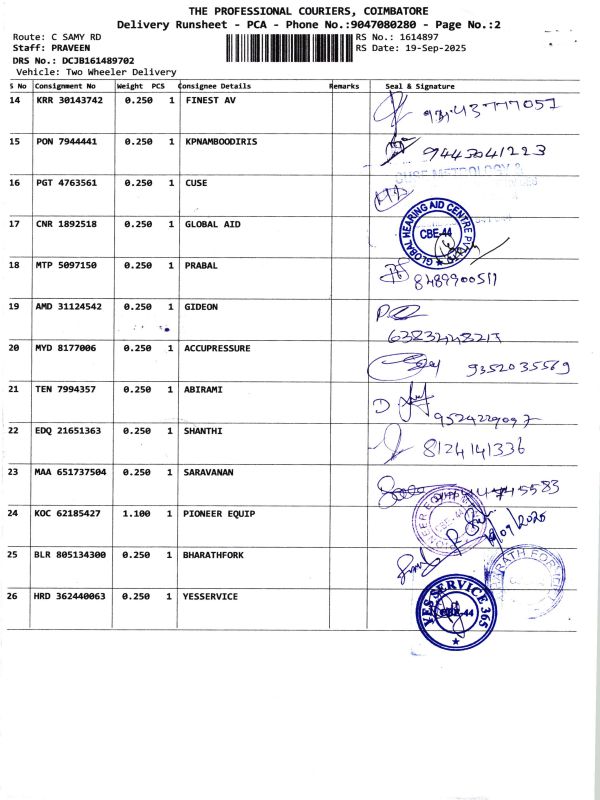 THE PROFESSIONAL COURIERS, COIMBATORE
Delivery Runsheet - PCA - Phone No.:9047080280 - Page No.:2
Route: C SAMY RD RS No.: 1614897
Staff: PRAVEEN RS Date: 19-Sep-2025
DRS No.: DCJB161489702
Vehicle: Two Wheeler Delivery
S No Consignment No Weight PCS Consignee Details Remarks Seal & Signature
14 KRR 30143742 0.250 1 FINEST AV
15 PON 7944441 0.250 1 KPNAMBOODIRIS 9443041223
16 PGT 4763561 0.250 1 CUSE
17 CNR 1892518 0.250 1 GLOBAL AID GLOBAL HEARING AID CENTRE PVT CBE-44
18 MTP 5097150 0.250 1 PRABAL 8489900511
19 AMD 31124542 0.250 1 GIDEON
20 MYD 8177006 0.250 1 ACCUPRESSURE 9352035569
21 TEN 7994357 0.250 1 ABIRAMI 9524229097
22 EDQ 21651363 0.250 1 SHANTHI 8124141336
23 MAA 651737504 0.250 1 SARAVANAN
24 KOC 62185427 1.100 1 PIONEER EQUIP
25 BLR 805134300 0.250 1 BHARATHFORK
26 HRD 362440063 0.250 1 YESSERVICE YES SERVICE 365 CBE-44